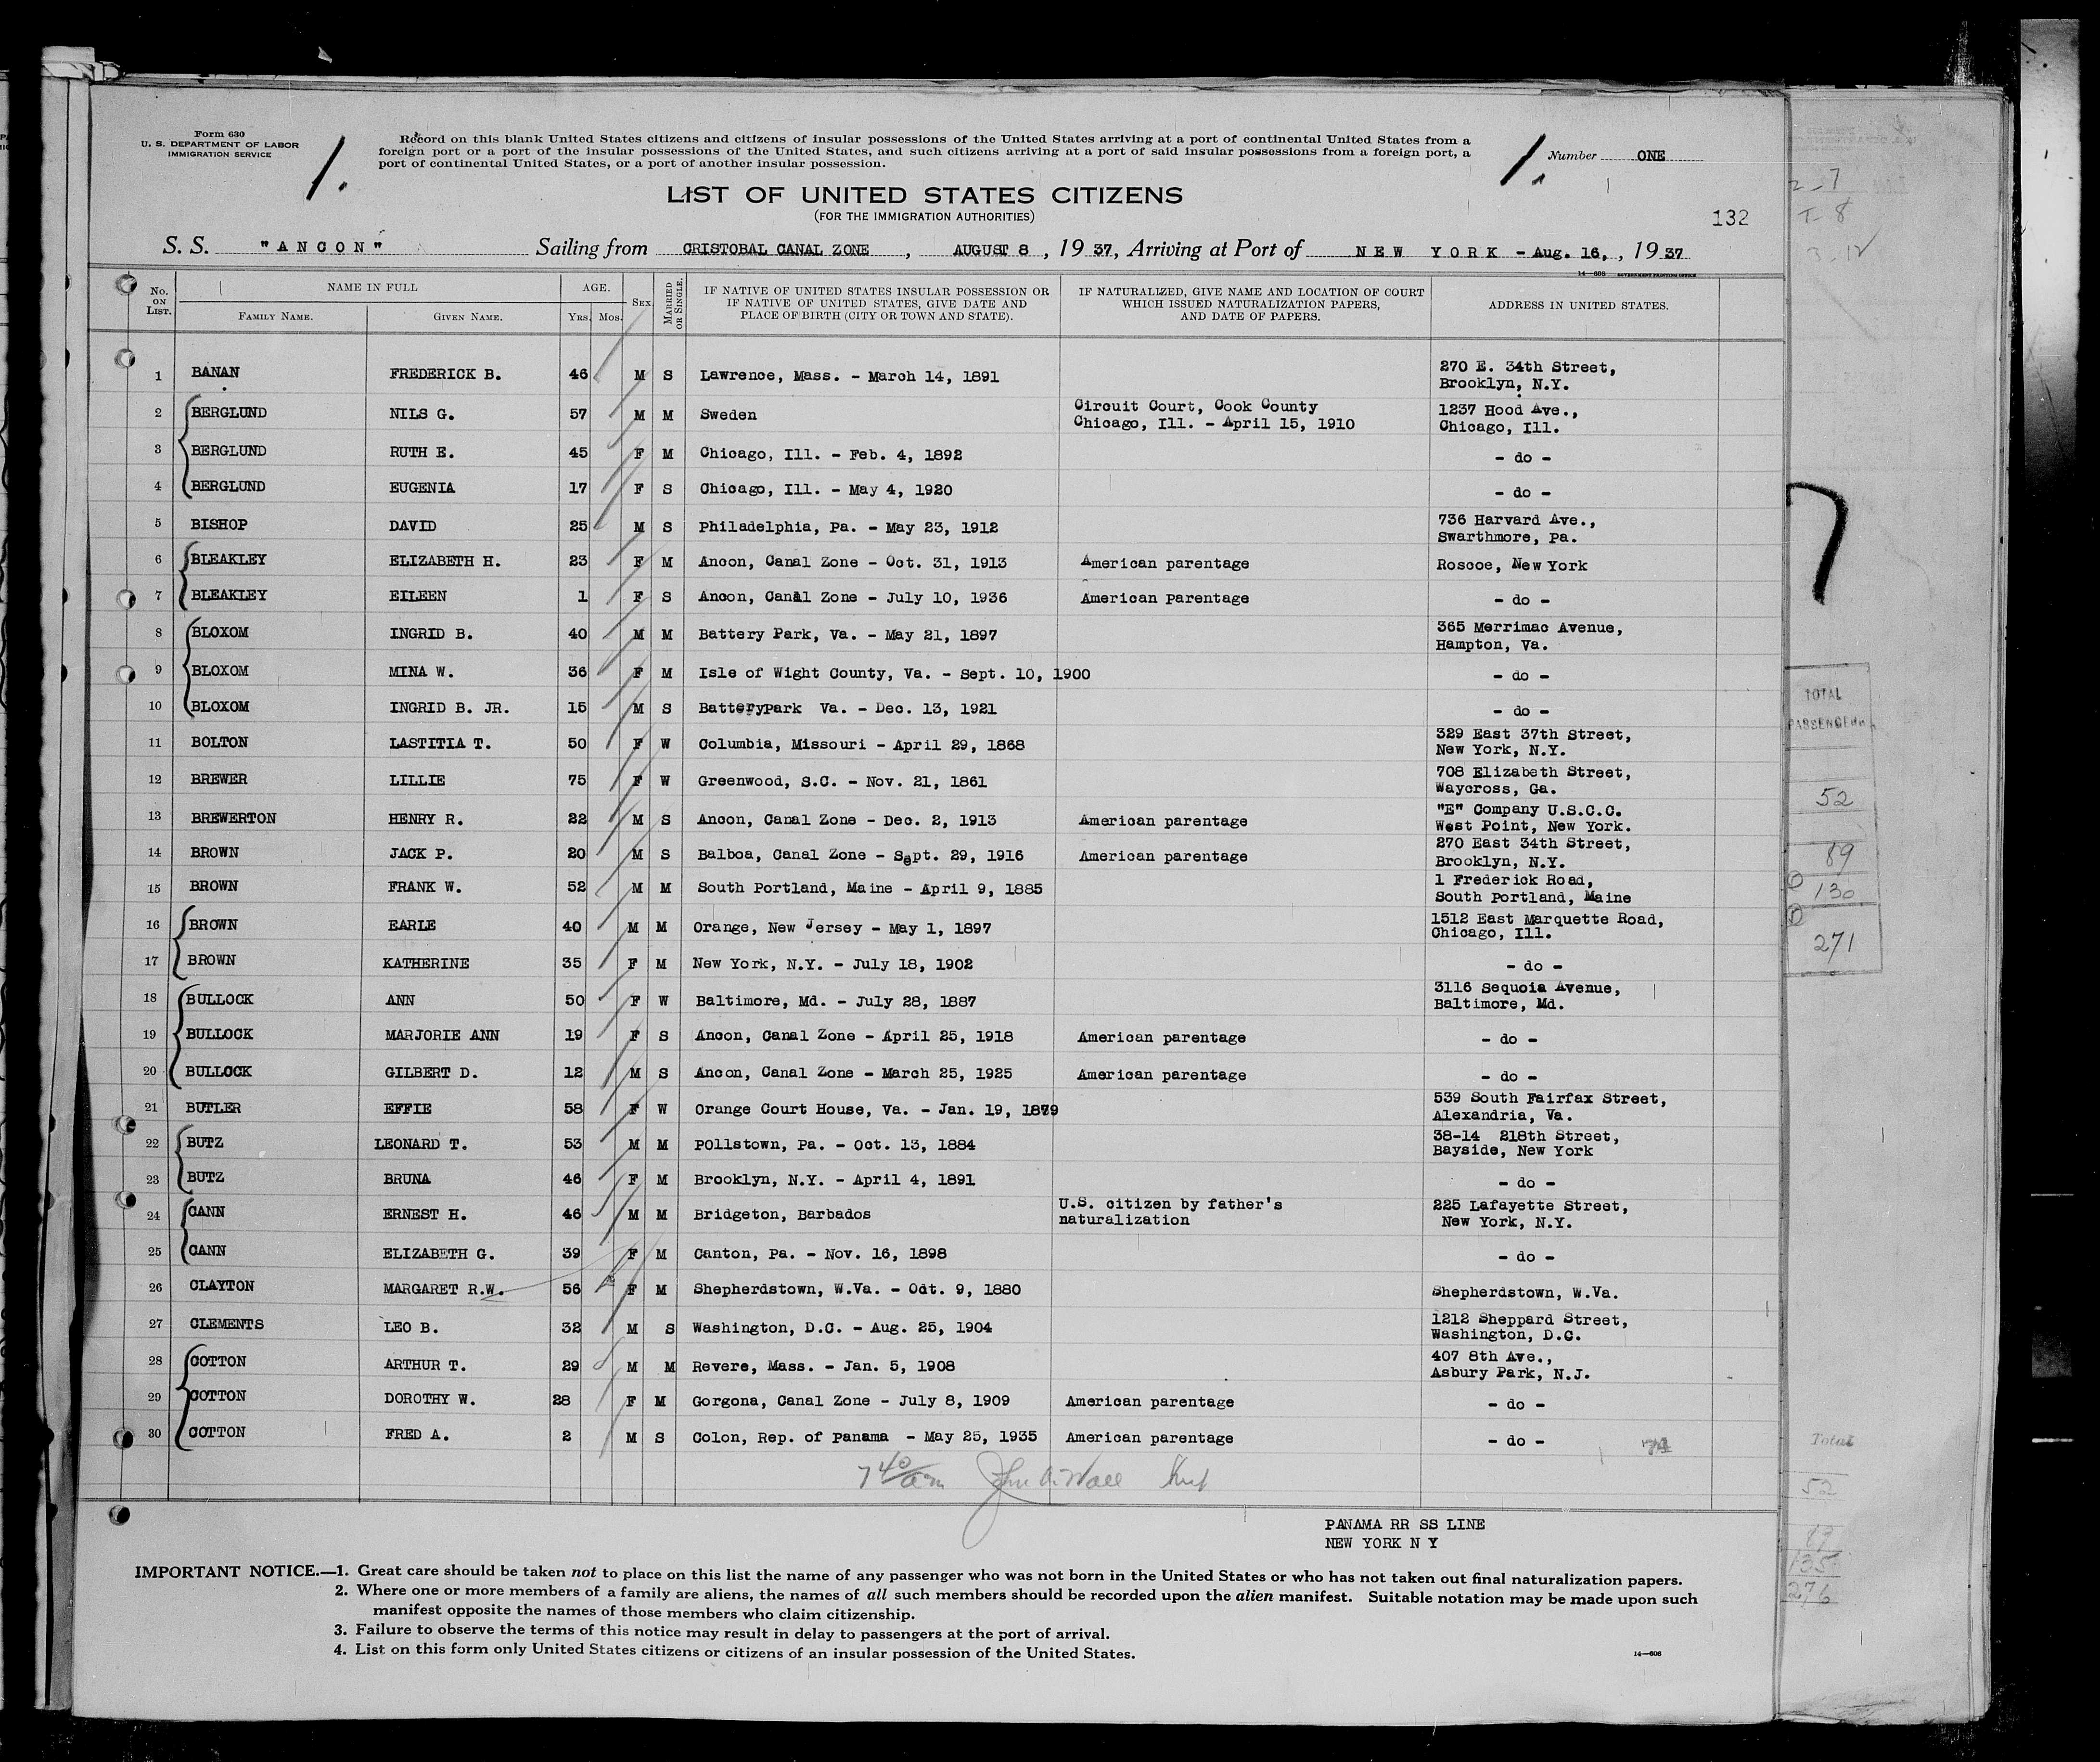 Form 630
U. S. DEPARTMENT OF LABOR
IMMIGRATION SERVICE
1.
Record on this blank United States citizens and citizens of insular possessions of the United States arriving at a port of continental United States from a
foreign port or a port of the insular possessions of the United States, and such citizens arriving at a port of said insular possessions from a foreign port, a
port of continental United States, or a port of another insular possession.
1.
Number ONE
LIST OF UNITED STATES CITIZENS
(FOR THE IMMIGRATION AUTHORITIES)
132
S. S. "ANCON" Sailing from CRISTOBAL CANAL ZONE, AUGUST 8, 1937, Arriving at Port of NEW YORK - Aug. 16,, 1937
14—608 GOVERNMENT PRINTING OFFICE
No. ON LIST. NAME IN FULL FAMILY NAME. GIVEN NAME. AGE. Yrs. Mos. SEX. MARRIED OR SINGLE. IF NATIVE OF UNITED STATES INSULAR POSSESSION OR IF NATIVE OF UNITED STATES, GIVE DATE AND PLACE OF BIRTH (CITY OR TOWN AND STATE). IF NATURALIZED, GIVE NAME AND LOCATION OF COURT WHICH ISSUED NATURALIZATION PAPERS, AND DATE OF PAPERS. ADDRESS IN UNITED STATES.
1 BANAN FREDERICK B. 46 M S Lawrence, Mass. - March 14, 1891 270 E. 34th Street, Brooklyn, N.Y.
2 BERGLUND NILS G. 57 M M Sweden Circuit Court, Cook County Chicago, Ill. - April 15, 1910 1237 Hood Ave., Chicago, Ill.
3 BERGLUND RUTH E. 45 F M Chicago, Ill. - Feb. 4, 1892 - do -
4 BERGLUND EUGENIA 17 F S Chicago, Ill. - May 4, 1920 - do -
5 BISHOP DAVID 25 M S Philadelphia, Pa. - May 23, 1912 736 Harvard Ave., Swarthmore, Pa.
6 BLEAKLEY ELIZABETH H. 23 F M Ancon, Canal Zone - Oct. 31, 1913 American parentage Roscoe, New York
7 BLEAKLEY EILEEN 1 F S Ancon, Canal Zone - July 10, 1936 American Parentage - do -
8 BLOXOM INGRID B. 40 M M Battery Park, Va. - May 21, 1897 365 Merrimac Avenue, Hampton, Va.
9 BLOXOM MINA W. 36 F M Isle of Wight County, Va. - Sept. 10, 1900 - do -
10 BLOXOM INGRID B. JR. 15 M S Batterypark Va. - Dec. 13, 1921 - do -
11 BOLTON LASTITIA T. 50 F W Columbia, Missouri - April 29, 1868 329 East 37th Street, New York, N.Y.
12 BREWER LILLIE 75 F W Greenwood, S.C. - Nov. 21, 1861 708 Elizabeth Street, Waycross, Ga.
13 BREWERTON HENRY R. 22 M S Ancon, Canal Zone - Dec. 2, 1913 American parentage "E" Company U.S.C.C. West Point, New York.
14 BROWN JACK P. 20 M S Balboa, Canal Zone - Sept. 29, 1916 American parentage 270 East 34th Street, Brooklyn, N.Y.
15 BROWN FRANK W. 52 M M South Portland, Maine - April 9, 1885 1 Frederick Road, South Portland, Maine
16 BROWN EARLE 40 M M Orange, New Jersey - May 1, 1897 1512 East Marquette Road, Chicago, Ill.
17 BROWN KATHERINE 35 F M New York, N.Y. - July 18, 1902 - do -
18 BULLOCK ANN 50 F W Baltimore, Md. - July 28, 1887 3116 Sequoia Avenue, Baltimore, Md.
19 BULLOCK MARJORIE ANN 19 F S Ancon, Canal Zone - April 25, 1918 American parentage - do -
20 BULLOCK GILBERT D. 12 M S Ancon, Canal Zone - March 25, 1925 American parentage - do -
21 BUTLER EFFIE 58 F W Orange Court House, Va. - Jan. 19, 1879 539 South Fairfax Street, Alexandria, Va.
22 BUTZ LEONARD T. 53 M M Pollstown, Pa. - Oct. 13, 1884 38-14 218th Street, Bayside, New York
23 BUTZ BRUNA 46 F M Brooklyn, N.Y. - April 4, 1891 - do -
24 CANN ERNEST H. 46 M M Bridgeton, Barbados U.S. citizen by father's naturalization 225 Lafayette Street, New York, N.Y.
25 CANN ELIZABETH G. 39 F M Canton, Pa. - Nov. 16, 1898 - do -
26 CLAYTON MARGARET R.W. 56 F M Shepherdstown, W.Va. - Odt. 9, 1880 Shepherdstown, W.Va.
27 CLEMENTS LEO B. 32 M S Washington, D.C. - Aug. 25, 1904 1212 Sheppard Street, Washington, D.C.
28 COTTON ARTHUR T. 29 M M Revere, Mass. - Jan. 5, 1908 407 8th Ave., Asbury Park, N.J.
29 COTTON DOROTHY W. 28 F M Gorgona, Canal Zone - July 8, 1909 American parentage - do -
30 COTTON FRED A. 2 M S Colon, Rep. of Panama - May 25, 1935 American parentage - do -
7 40/am John A. Wall
PANAMA RR SS LINE
NEW YORK N Y
IMPORTANT NOTICE.—1. Great care should be taken not to place on this list the name of any passenger who was not born in the United States or who has not taken out final naturalization papers.
2. Where one or more members of a family are aliens, the names of all such members should be recorded upon the alien manifest. Suitable notation may be made upon such
manifest opposite the names of those members who claim citizenship.
3. Failure to observe the terms of this notice may result in delay to passengers at the port of arrival.
4. List on this form only United States citizens or citizens of an insular possession of the United States.
14—608
TOTAL
PASSENGERS
52
89
130
271
Total
52
276